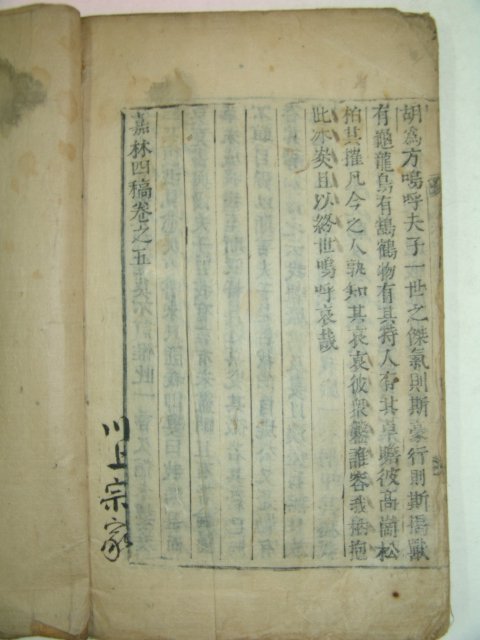 胡爲方嗚呼夫子一世之傑氣則斯豪行則斯獸
有龜龍鳥有鶴物有其特人有其卓瞻彼高崗松
柏其摧凡今之人孰知其哀哀彼衆誰容我抱
此冰炭且以終世嗚呼哀哉
嘉林四稿卷之五
川上宗家